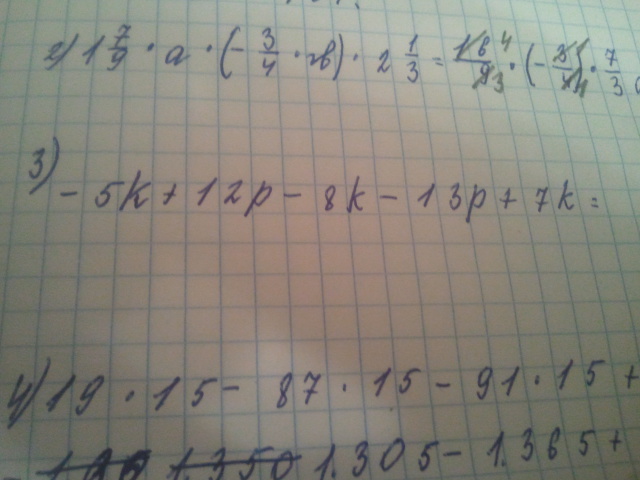 г) 1 7/9 · a · (- 3/4 · в) · 2 1/3 = 16/9 · (- 3/4) · 7/3
3)
- 5k + 12p - 8k - 13p + 7k =
4) 19 · 15 - 87 · 15 - 91 · 15 +
1.305 - 1.365 +